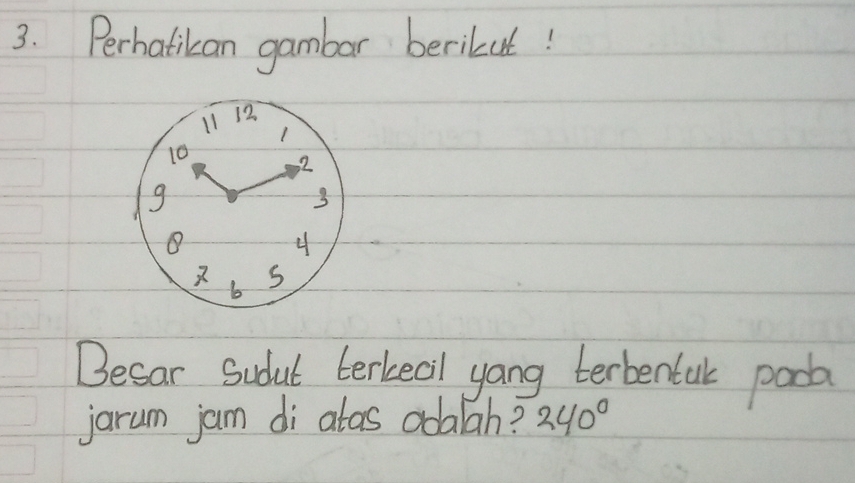 3. Perhatikan gambar berikut !
11 12 1
10 2
9 3
8 4
7 6 5
Besar sudut terkecil yang terbentuk pada
jarum jam di atas adalah? 240°